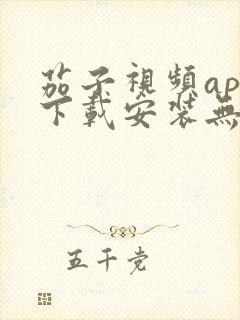 茄子視頻ap
下載安装無
五千党